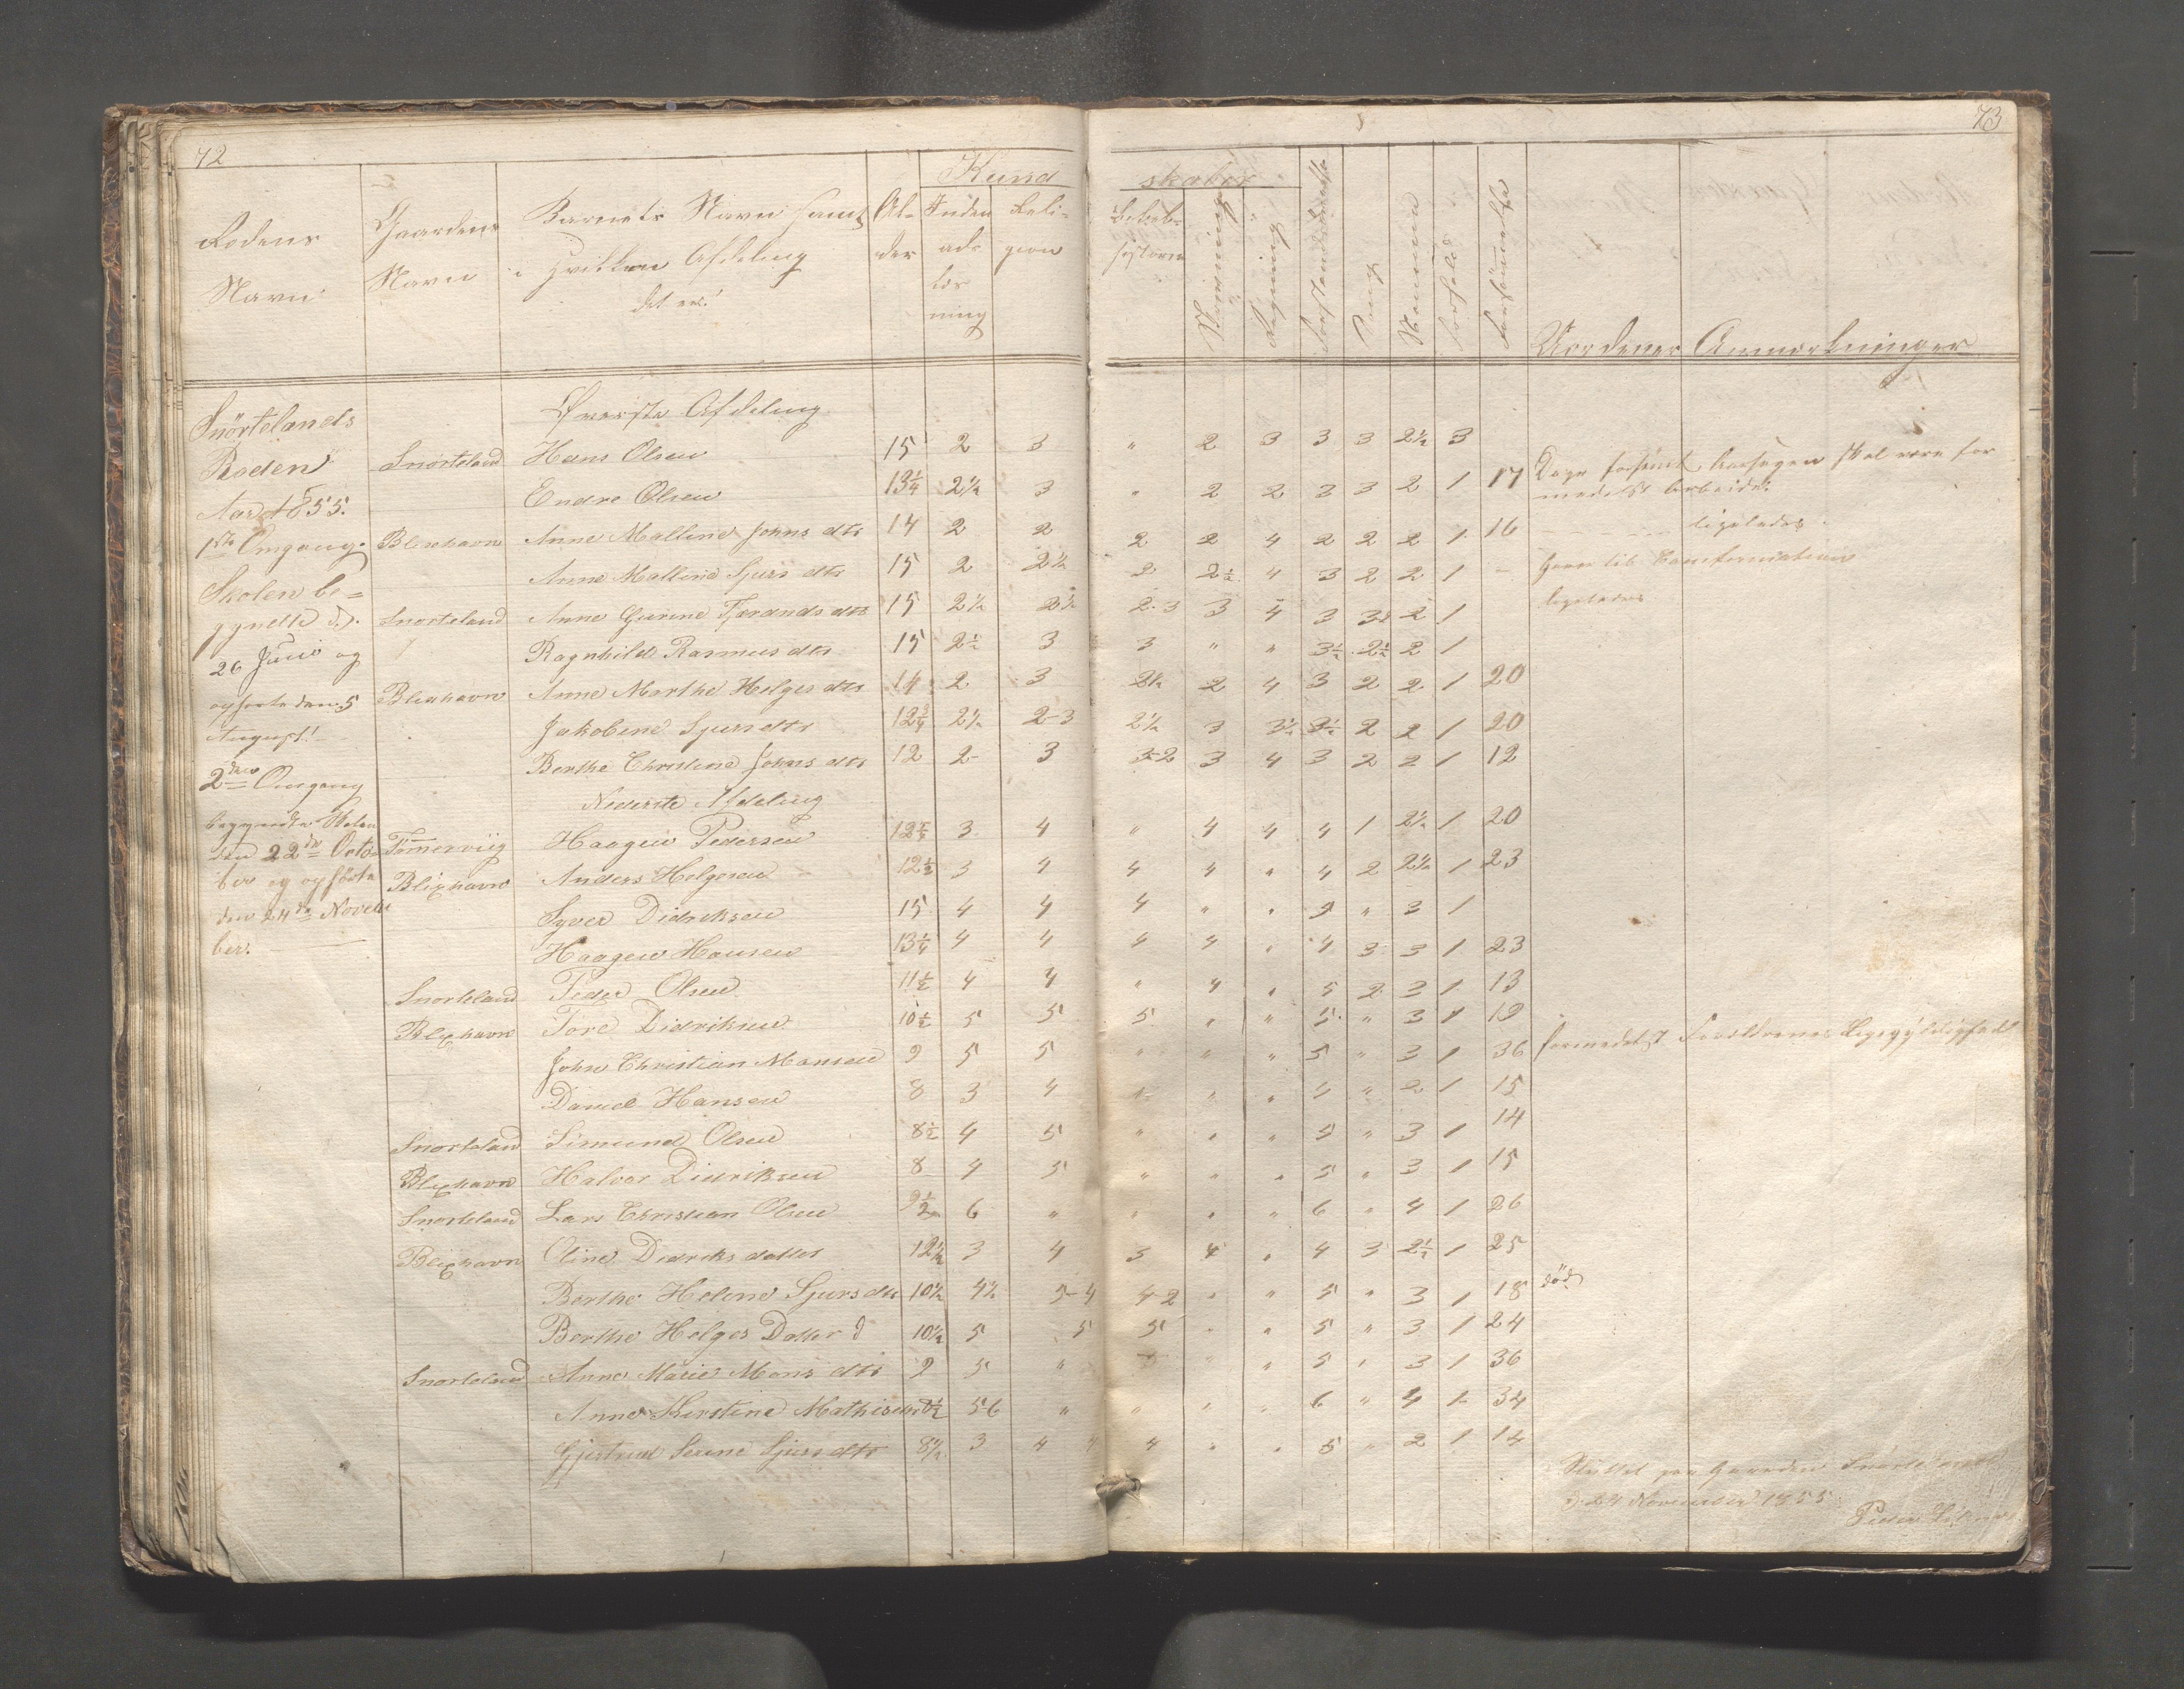 72
73
Kund
skaber
Rodens
Navn
Gaardens
Navn
Barnets Navn samt
i hvilken Afdeling
det er!
Al-
der
Inden-
ads
læs
ning
Reli-
gion
Bibel-
historie
Skrivning
Regning
Sang
Nemme
Forhold
Forsømmelse
Lærerens Anmærkninger
Snörtelands
Roden
Aar 1855.
1ste Omgang.
Skolen be=
gyndte d.
26 Juni og
ophörte den 5
August!
2den Omgang
begyndte Skolen
den 22de Octo-
ber og ophörte
den 24de Novem
ber.
Øverste Afdeling
Snorteland Hans Olsen 15 2 3 " 2 3 3 3 2½ 3
Endre Olsen 13¼ 2½ 3 " 2 2 3 3 2 1 17 Dage forsömt Aarsagen skal være for
medelst Arbeide.
Blixhavn Anne Malline Johns dtr 14 2 2 2 2 4 2 2 2 1 16 ligeledes
Anne Malline Sjurs dtr 15 2 2½ 2 2½ 4 3 2 2 1 – Gaar til Konfirmation
Snorteland Anne Gurine Tjerands dtr 15 2½ 2½ 2-3 3 4 3 3½ 2 1 ligeledes
Ragnhild Rasmus dtr 15 2½ 3 3 " " 3½ 2½ 2 1
Blixhavn Anne Marthe Helges dtr 14 2 3 2½ 2 4 3 2 2 1 20
Jakobine Sjurs dtr 12¾ 2½ 2-3 2½ 3 3½ 3½ 2 2 1 20
Berthe Christine Johns dtr 12 2 3 3-2 3 4 3 2 2 1 12
Nederste Afdeling
Tömmerviig Haagen Pedersen 12¾ 3 4 " 4 4 4 1 2½ 1 20
Blixhavn Anders Helgesen 12½ 3 4 4 4 " 4 2 2½ 1 23
Syver Didriksen 15 4 4 4 " " 5 " 3 1
Haagen Hansen 13¼ 4 4 4 4 " 4 3 3 1 23
Snorteland Peder Olsen 11½ 4 4 " 4 " 5 2 3 1 13
Blixhavn Tore Didriksen 10½ 5 5 5 " " 5 " 3 1 19
John Christian Monsen 9 5 5 " " " 5 " 3 1 36 formedelst Forældrenes Ligegyldighed
Daniel Hansen 8 3 4 " " " 4 " 2 1 15
Snorteland Simund Olsen 8½ 4 5 " " " 5 " 3 1 14
Blixhavn Halvor Didriksen 8 4 5 " " " 5 " 3 1 15
Snorteland Lars Christian Olsen 9½ 6 " " " " 6 " 4 1 26
Blixhavn Oline Didriks datter 12½ 3 4 3 4 " 4 3 2½ 1 25
Berthe Helene Sjurs dtr 10½ 4½ 5-4 4-2 " " 5 " 3 1 18 död
Berthe Helges Datter 10½ 5 5 5 " " 5 " 3 1 24
Snorteland Anne Marie Mons dtr 9 5 " 5 " " 5 " 3 1 36
Anne Kirstine Mathisen 8½ 5-6 " " " " 6 " 4 1 34
Gjertrud Serine Sjurs dtr 8½ 3 4 4 " " 5 " 2 1 14
Sluttet paa Gaarden Snörteland
d. 24 November 1855
Peder